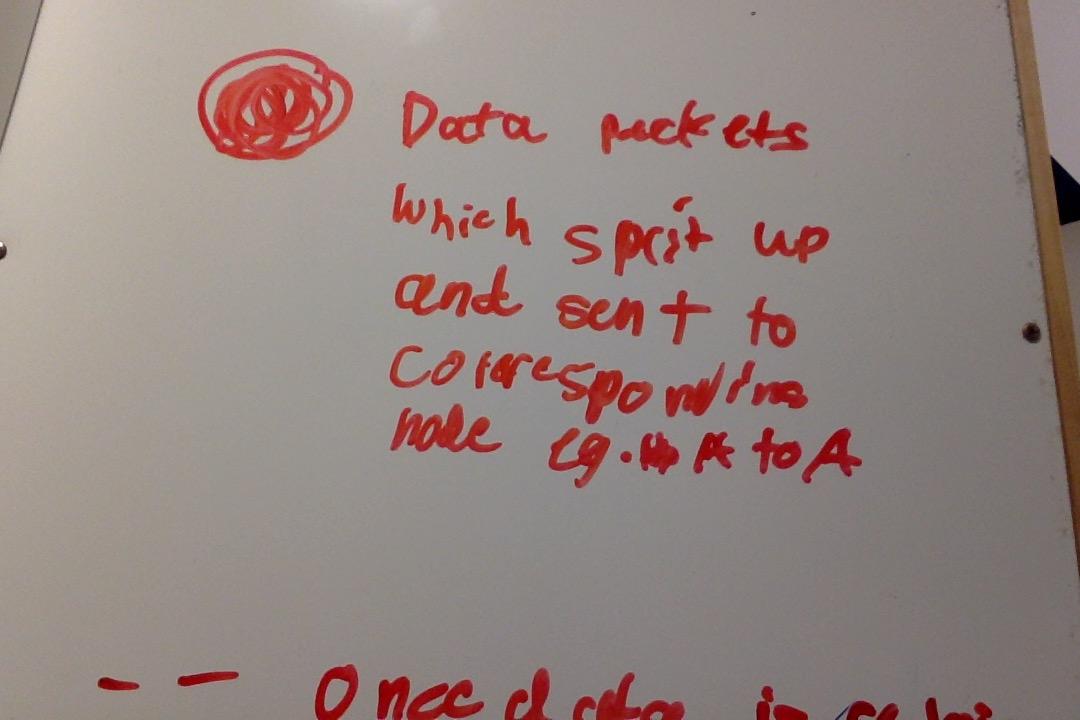 Data packets
which split up
and sent to
corresponding
node eg. A to A
Once data in